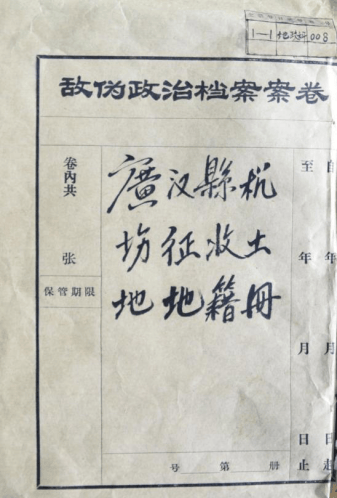 1—1 008
敌伪政治档案案卷
廣汉縣机
场征收土
地地籍冊
卷內共 张
保管期限
自 年 月 日起
至 年 月 日止
第 册 号